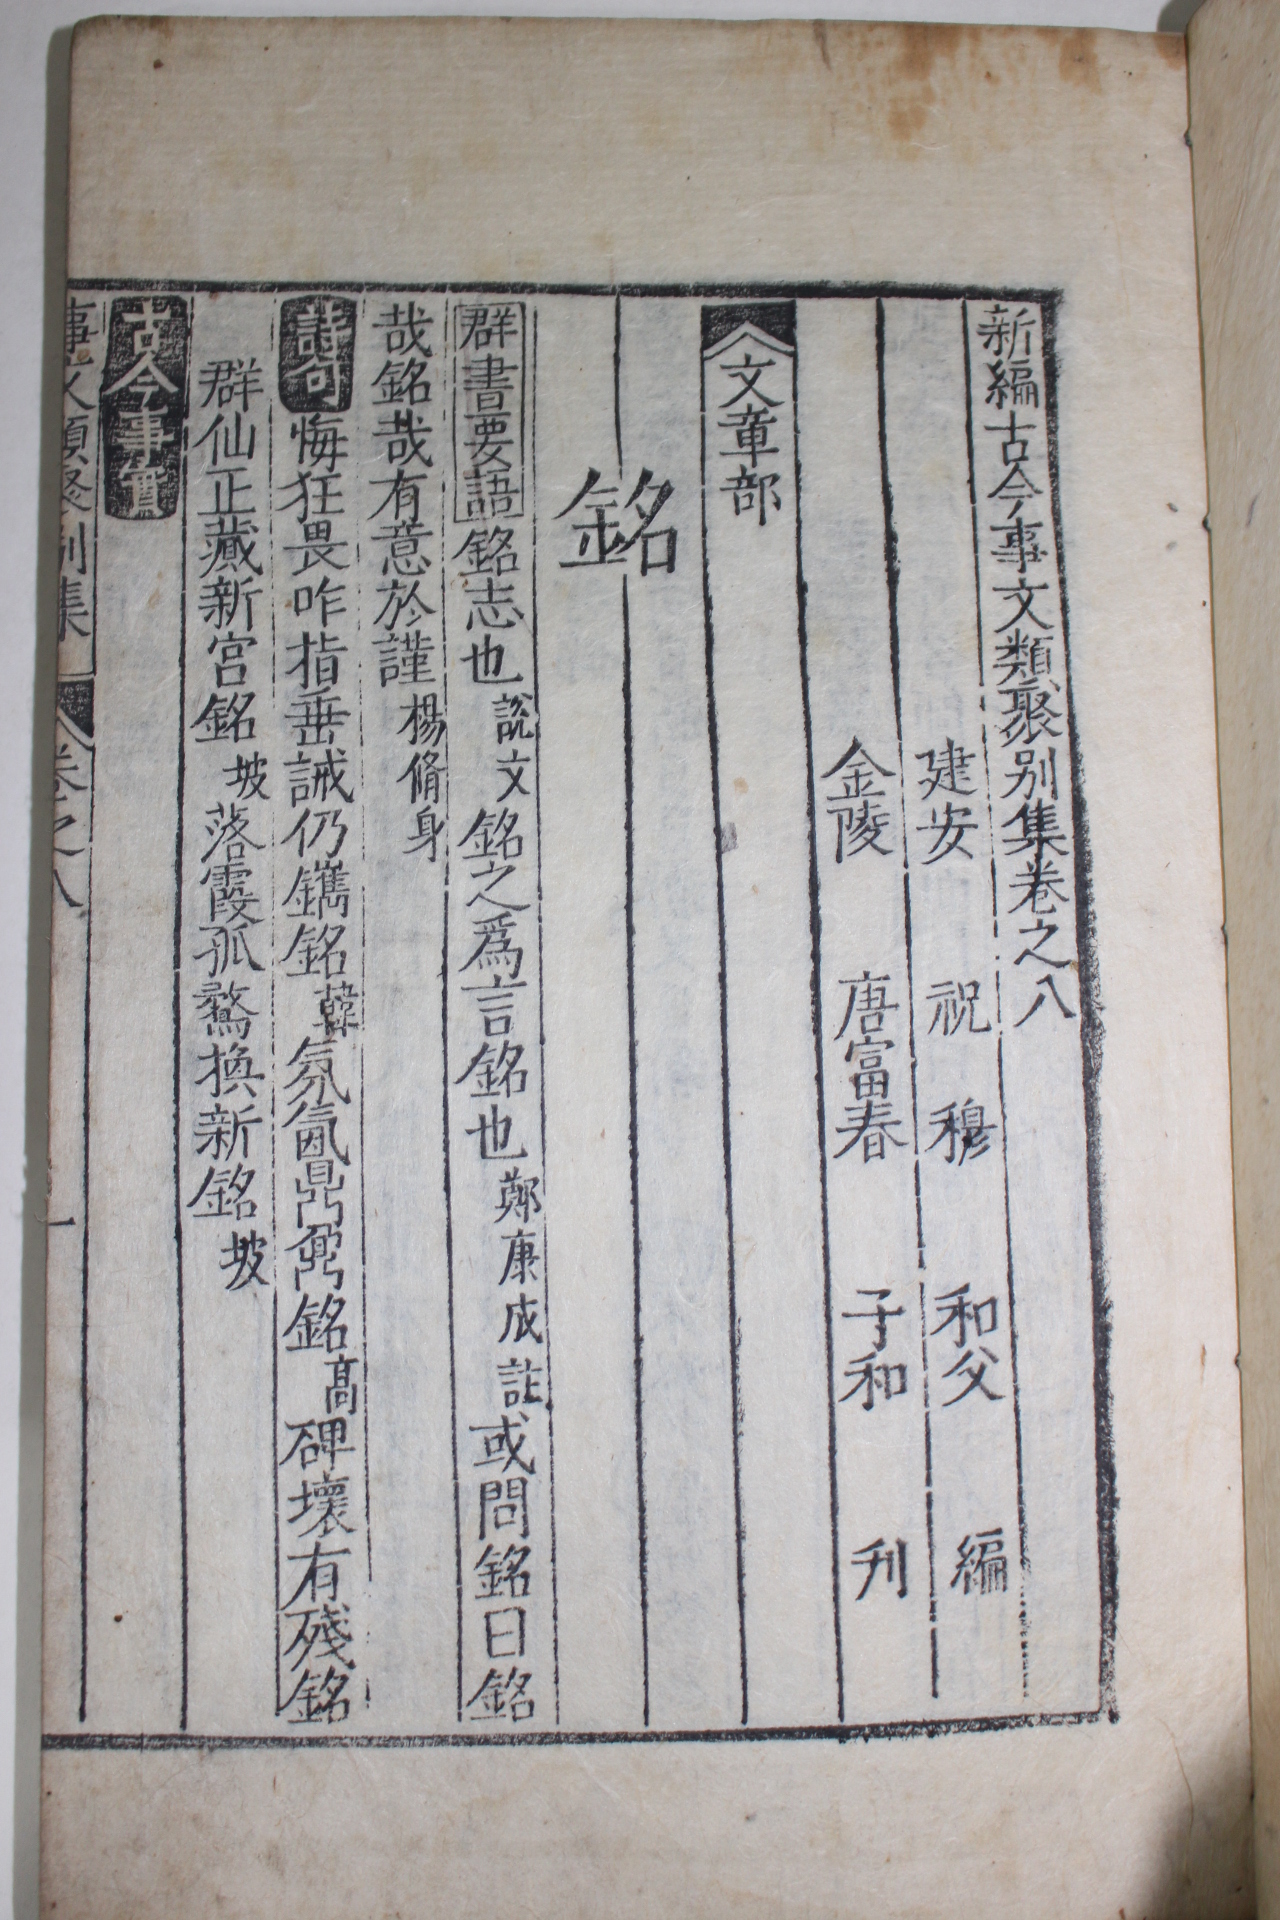 新編古今事文類聚別集卷之八
建安 祝 穆 和父 編
金陵 唐富春 子和 刋
文章部
銘
群書要語銘志也說文銘之爲言銘也鄭康成註或問銘曰銘
哉銘哉有意於謹楊脩身
詩句悔狂畏咋指垂誡仍鐫銘韓氛氳鼎鼐銘高碑壞有殘銘
群仙正藏新宮銘坡落霞孤鶩換新銘坡
古今事實
事文類聚別集 卷之八 一